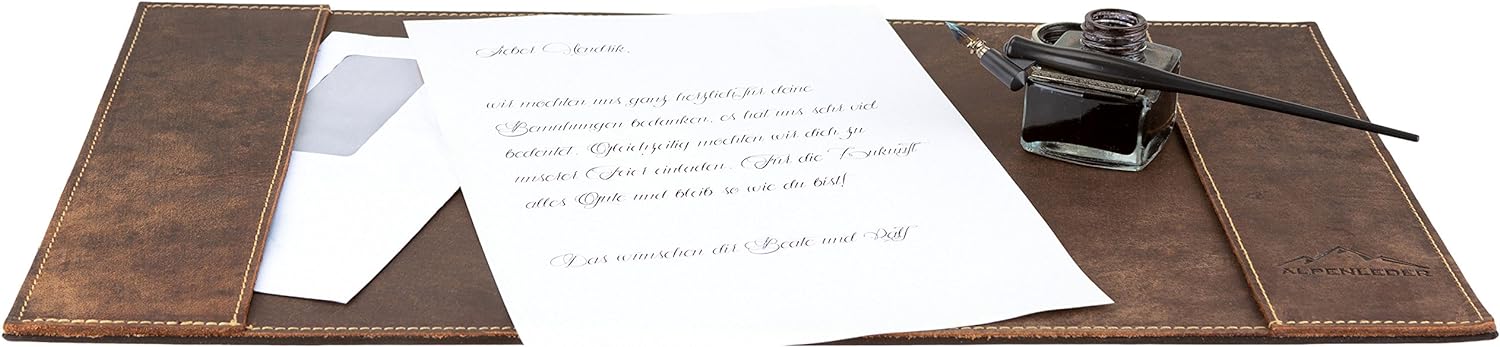 Lieber Hendrik,
wir möchten uns ganz herzlich für deine
Bemühungen bedanken, es hat uns sehr viel
bedeutet. Gleichzeitig möchten wir dich zu
unserer Feier einladen. Für die Zukunft
alles Gute und bleib so wie du bist!
Das wünschen dir Beate und Ralf
ALPENLEDER